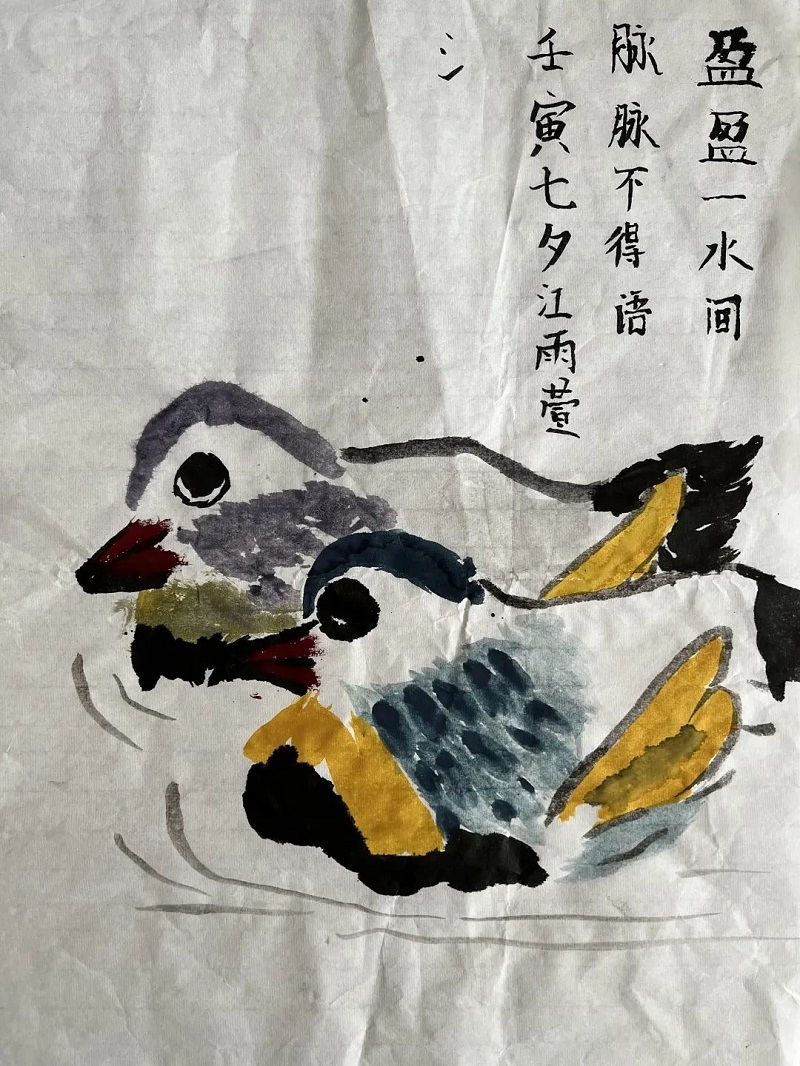 盈盈一水间
脉脉不得语
壬寅七夕江雨萱